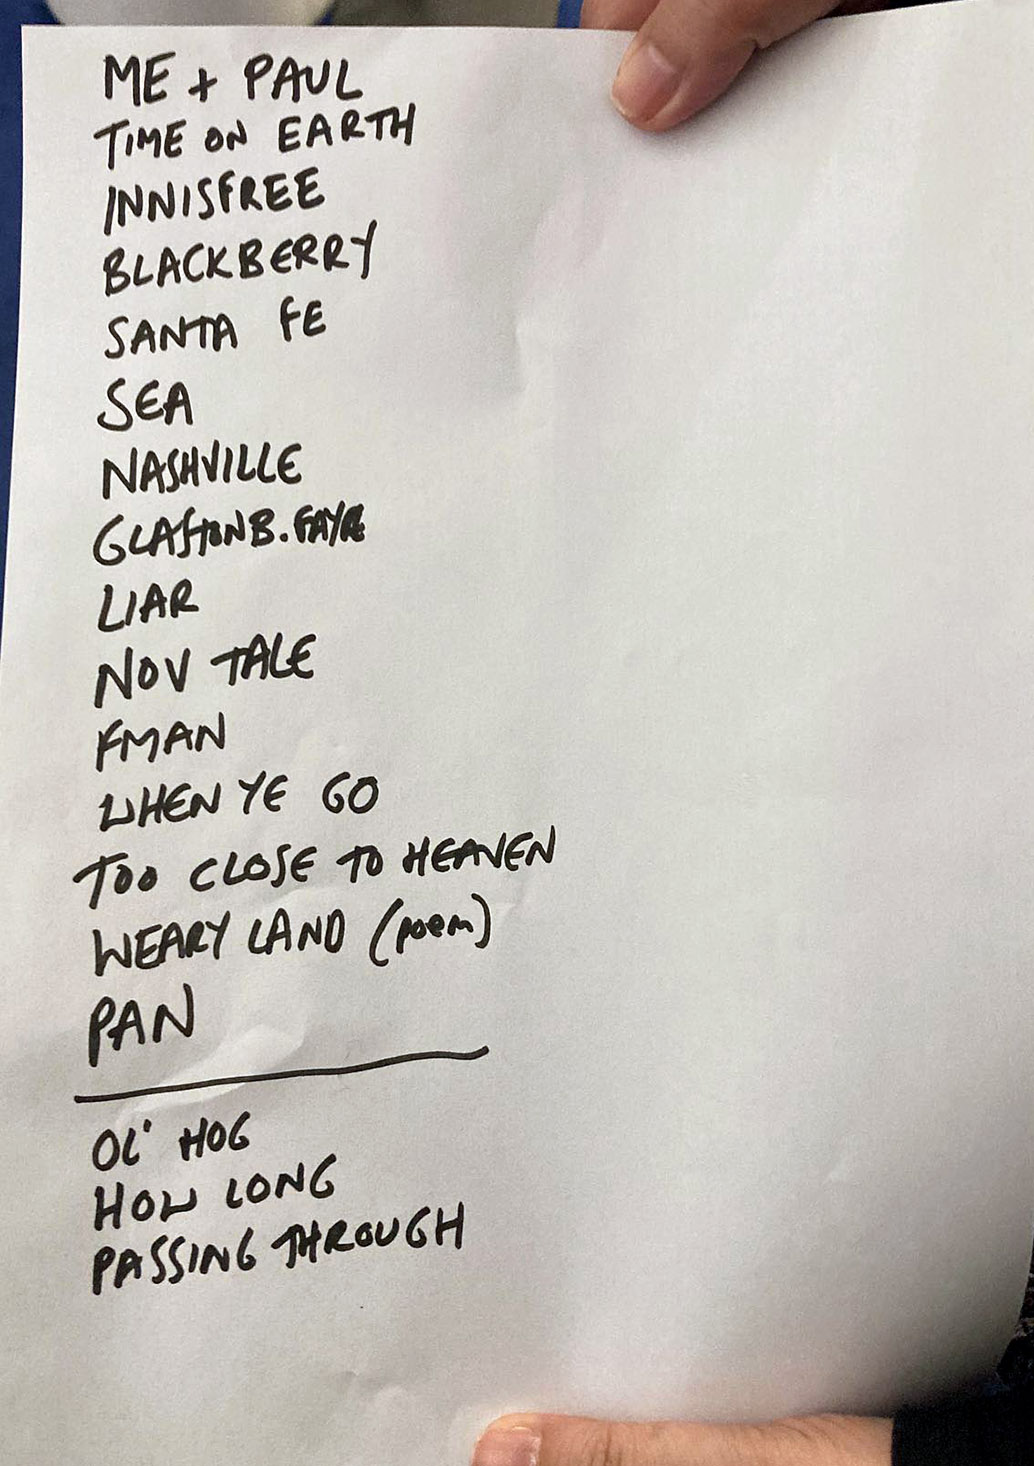 ME + PAUL
TIME ON EARTH
INNISFREE
BLACKBERRY
SANTA FE
SEA
NASHVILLE
GLASTONB. FAYRE
LIAR
NOV TALE
FMAN
WHEN YE GO
TOO CLOSE TO HEAVEN
WEARY LAND (poem)
PAN
OL' HOG
HOW LONG
PASSING THROUGH